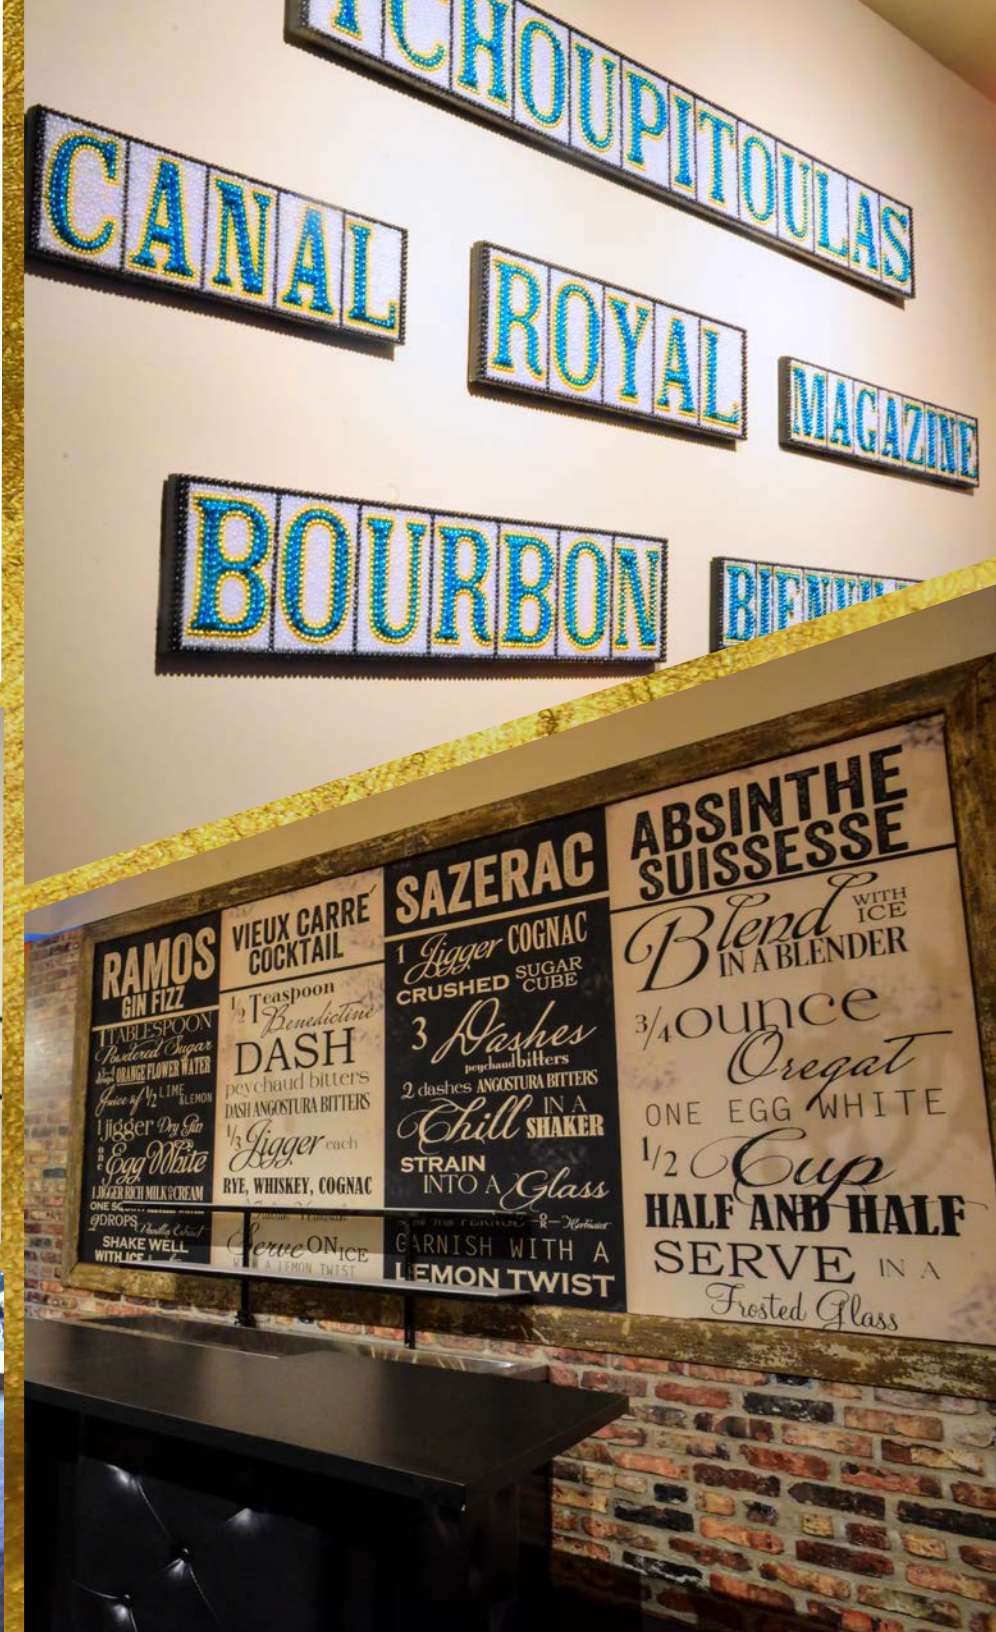 TCHOUPITOULAS
CANAL
ROYAL
MAGAZINE
BOURBON
RAMOS
GIN FIZZ
1 TABLESPOON
Powdered Sugar
ORANGE FLOWER WATER
Juice of 1/2 LIME & LEMON
1 jigger Dry Gin
one Egg White
1 JIGGER RICH MILK OR CREAM
ONE
2 DROPS Vanilla Extract
SHAKE WELL
WITH ICE
VIEUX CARRÉ
COCKTAIL
1/2 Teaspoon
Benedictine
DASH
peychaud bitters
DASH ANGOSTURA BITTERS
1/3 Jigger each
RYE, WHISKEY, COGNAC
Serve ON ICE
WITH A LEMON TWIST
SAZERAC
1 Jigger COGNAC
CRUSHED SUGAR CUBE
3 Dashes
peychaud bitters
2 dashes ANGOSTURA BITTERS
Chill IN A SHAKER
STRAIN
INTO A Glass
PERNOD OR Herbsaint
GARNISH WITH A
LEMON TWIST
ABSINTHE
SUISSESSE
Blend WITH ICE
IN A BLENDER
3/4 ounce
Oregat
ONE EGG WHITE
1/2 Cup
HALF AND HALF
SERVE IN A
Frosted Glass